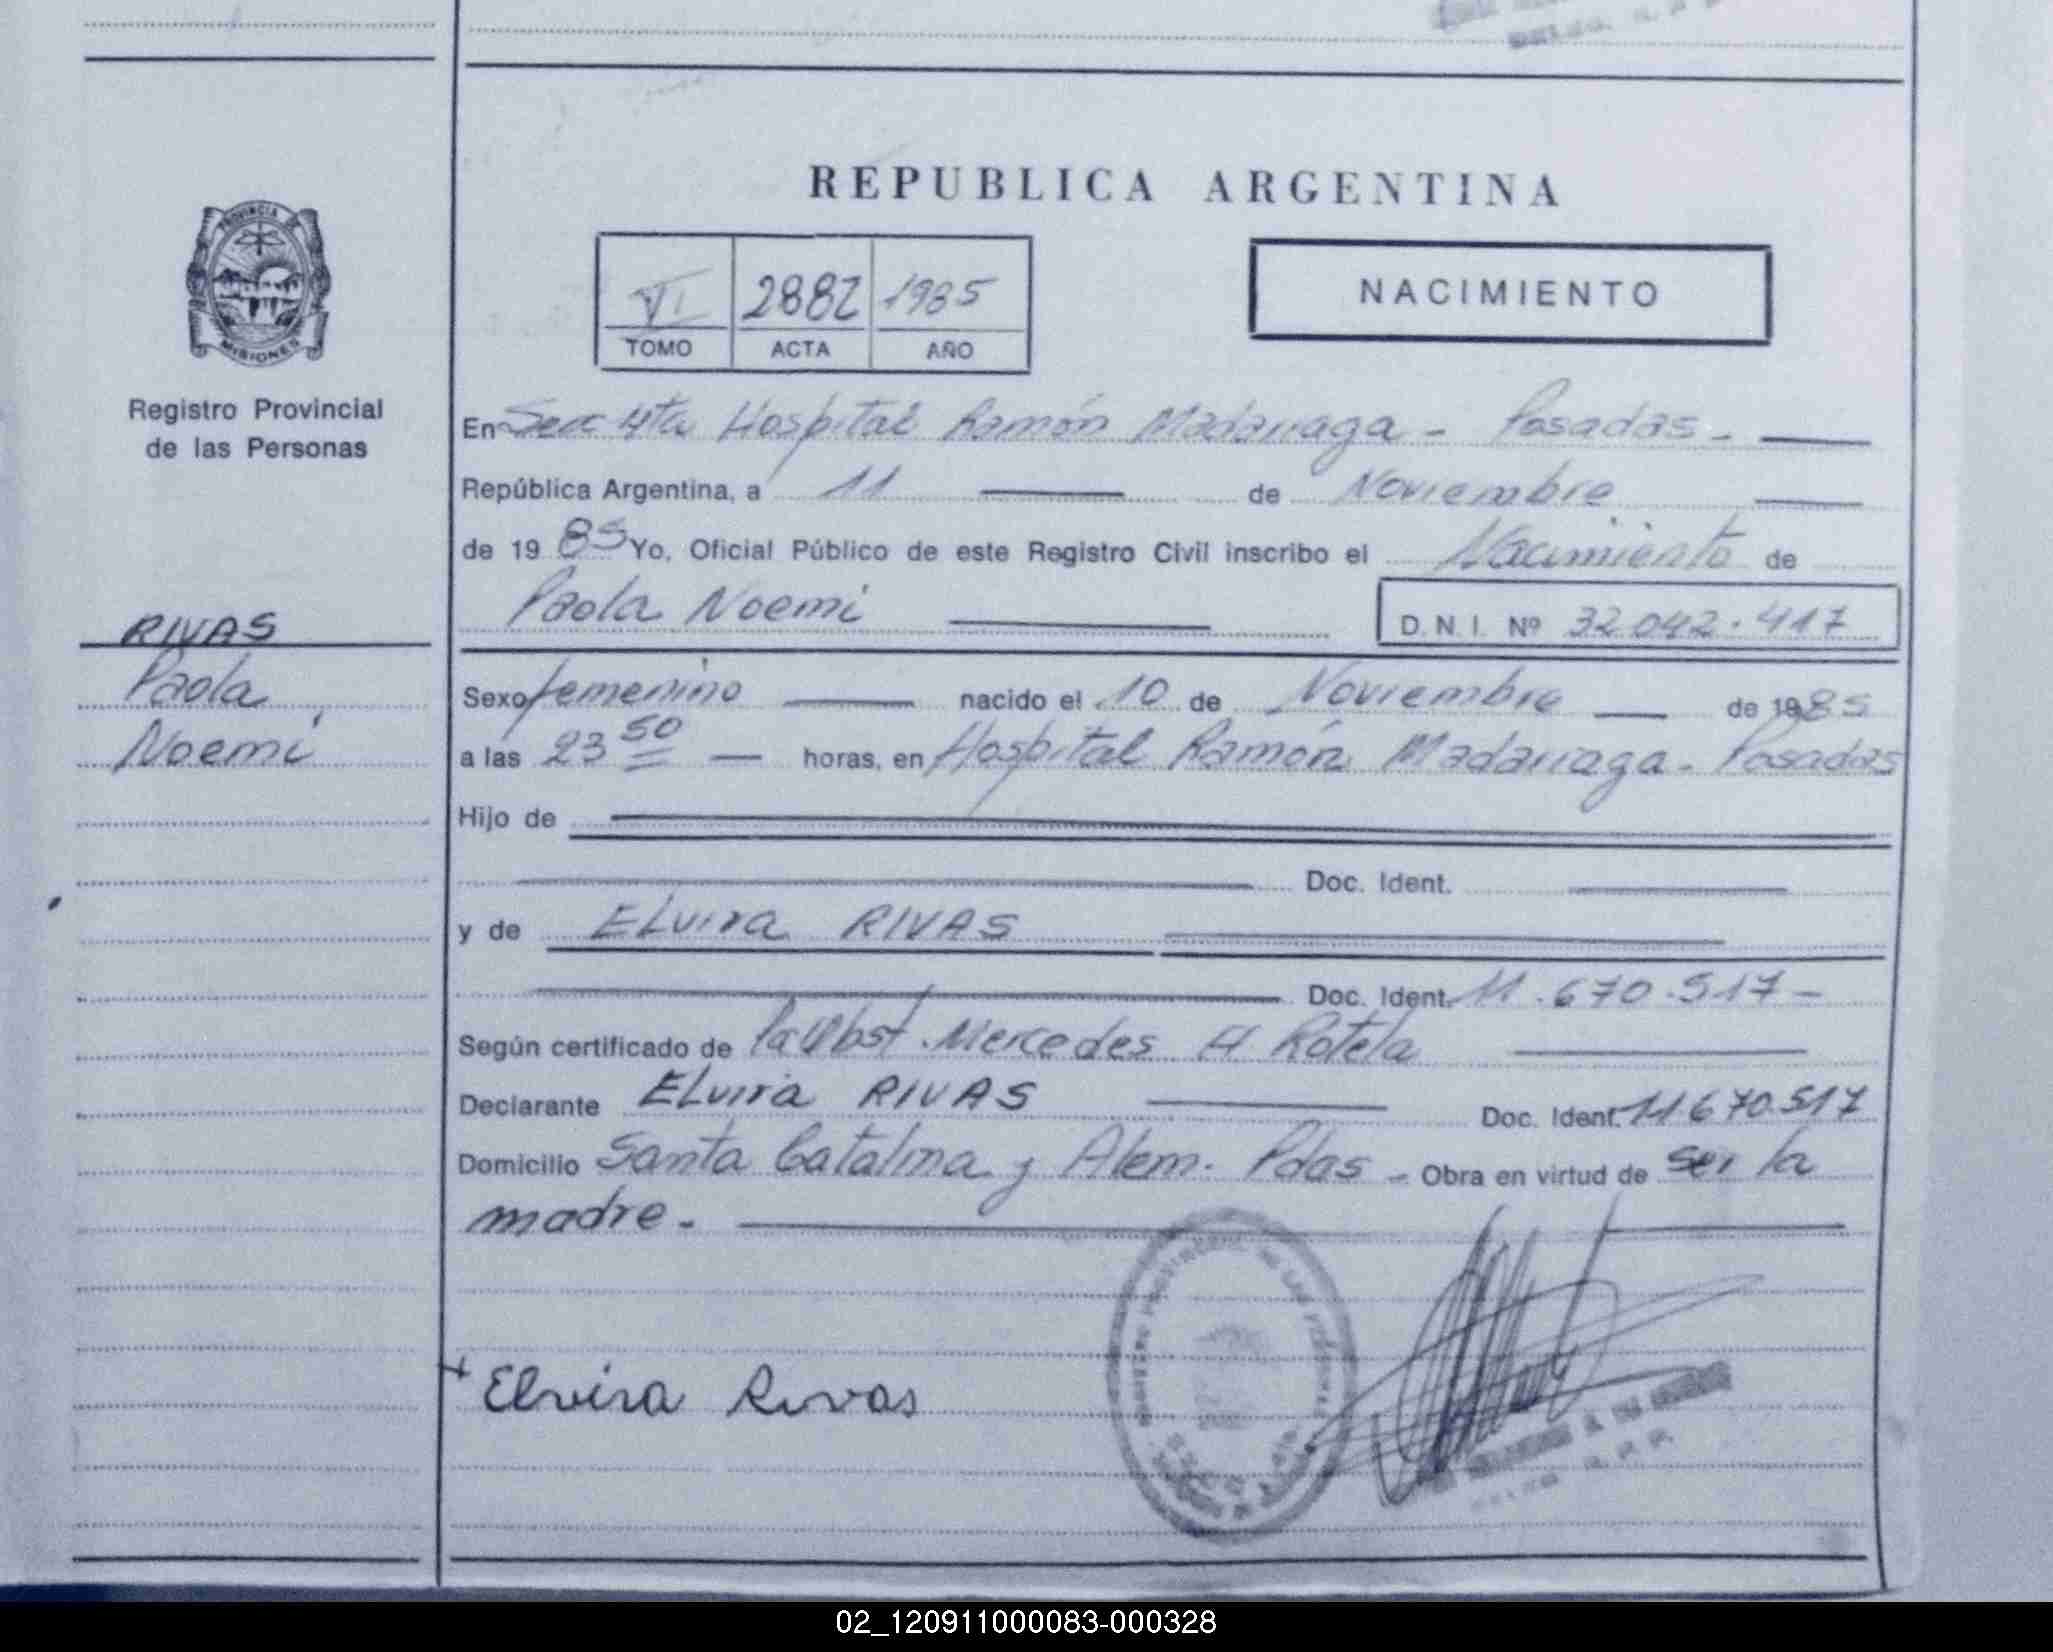 REPUBLICA ARGENTINA
PROVINCIA DE
MISIONES
VI 2882 1985
TOMO ACTA AÑO
NACIMIENTO
Registro Provincial
de las Personas
RIVAS
Paola
Noemí
En Secc 4ta Hospital Ramón Madariaga - Posadas -
República Argentina, a 11 de Noviembre
de 19 85 Yo, Oficial Público de este Registro Civil inscribo el Nacimiento de
Paola Noemi D.N.I. Nº 32.042.417
Sexo femenino nacido el 10 de Noviembre de 1985
a las 23 50 horas, en Hospital Ramón Madariaga - Posadas
Hijo de
Doc. Ident.
y de ELvira RIVAS
Doc. Ident. 11.670.517-
Según certificado de Obst. Mercedes H Rotela
Declarante ELvira RIVAS Doc. Ident. 11.670.517
Domicilio Santa Catalina y Alem. Pdas - Obra en virtud de ser la
madre.-
+ Elvira Rivas
02_120911000083-000328